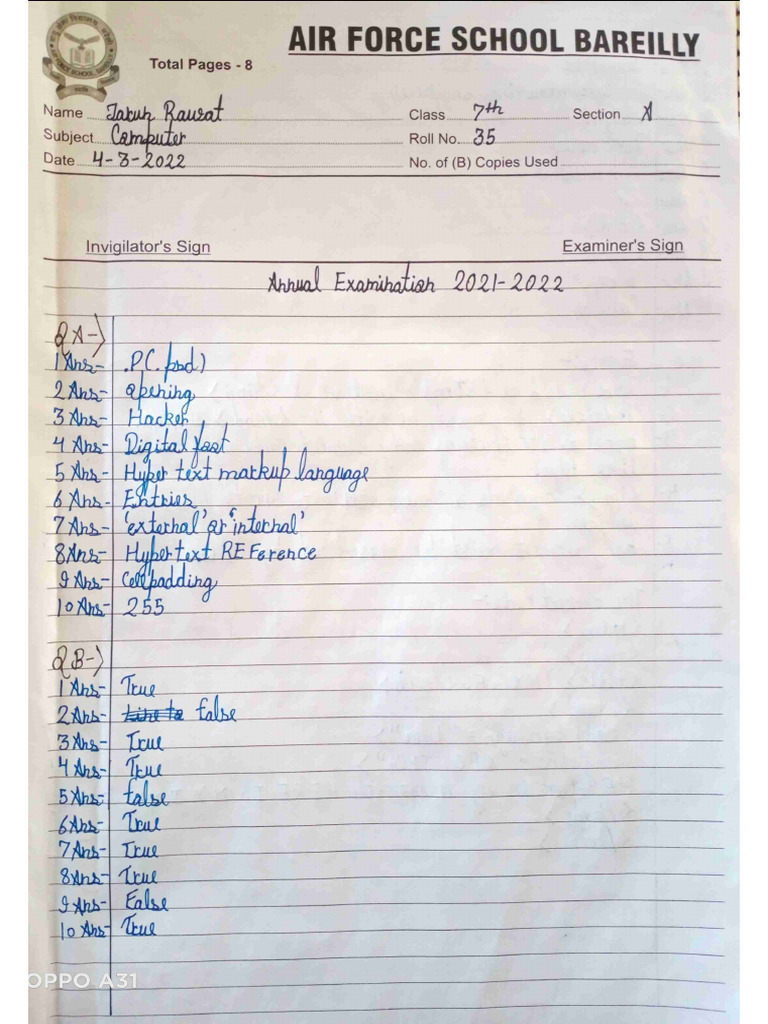 AIR FORCE SCHOOL BAREILLY
Total Pages - 8
Name Tarun Rawat Class 7th Section A
Subject Computer Roll No. 35
Date 4-3-2022 No. of (B) Copies Used
Invigilator's Sign Examiner's Sign
Annual Examination 2021-2022
Q A-)
1 Ans- .PC.psd)
2 Ans- opening
3 Ans- Hacker
4 Ans- Digital fast
5 Ans- Hyper text markup language
6 Ans- Entries
7 Ans- 'external' or 'internal'
8 Ans- Hypertext REFerence
9 Ans- Cellpadding
10 Ans- 255
Q B-)
1 Ans- True
2 Ans- false
3 Ans- True
4 Ans- True
5 Ans- false
6 Ans- True
7 Ans- True
8 Ans- True
9 Ans- False
10 Ans- True
OPPO A31